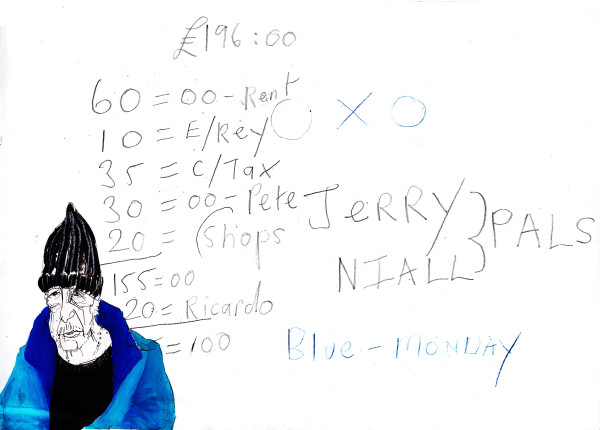 £196:00
60 = 00 - Rent
O X O
10 = E/Rey
35 = C/Tax
30 = 00 - Pete
20 = (Shops
JERRY
NIALL
PALS
155=00
20 = Ricardo
= 100
Blue - MONDAY